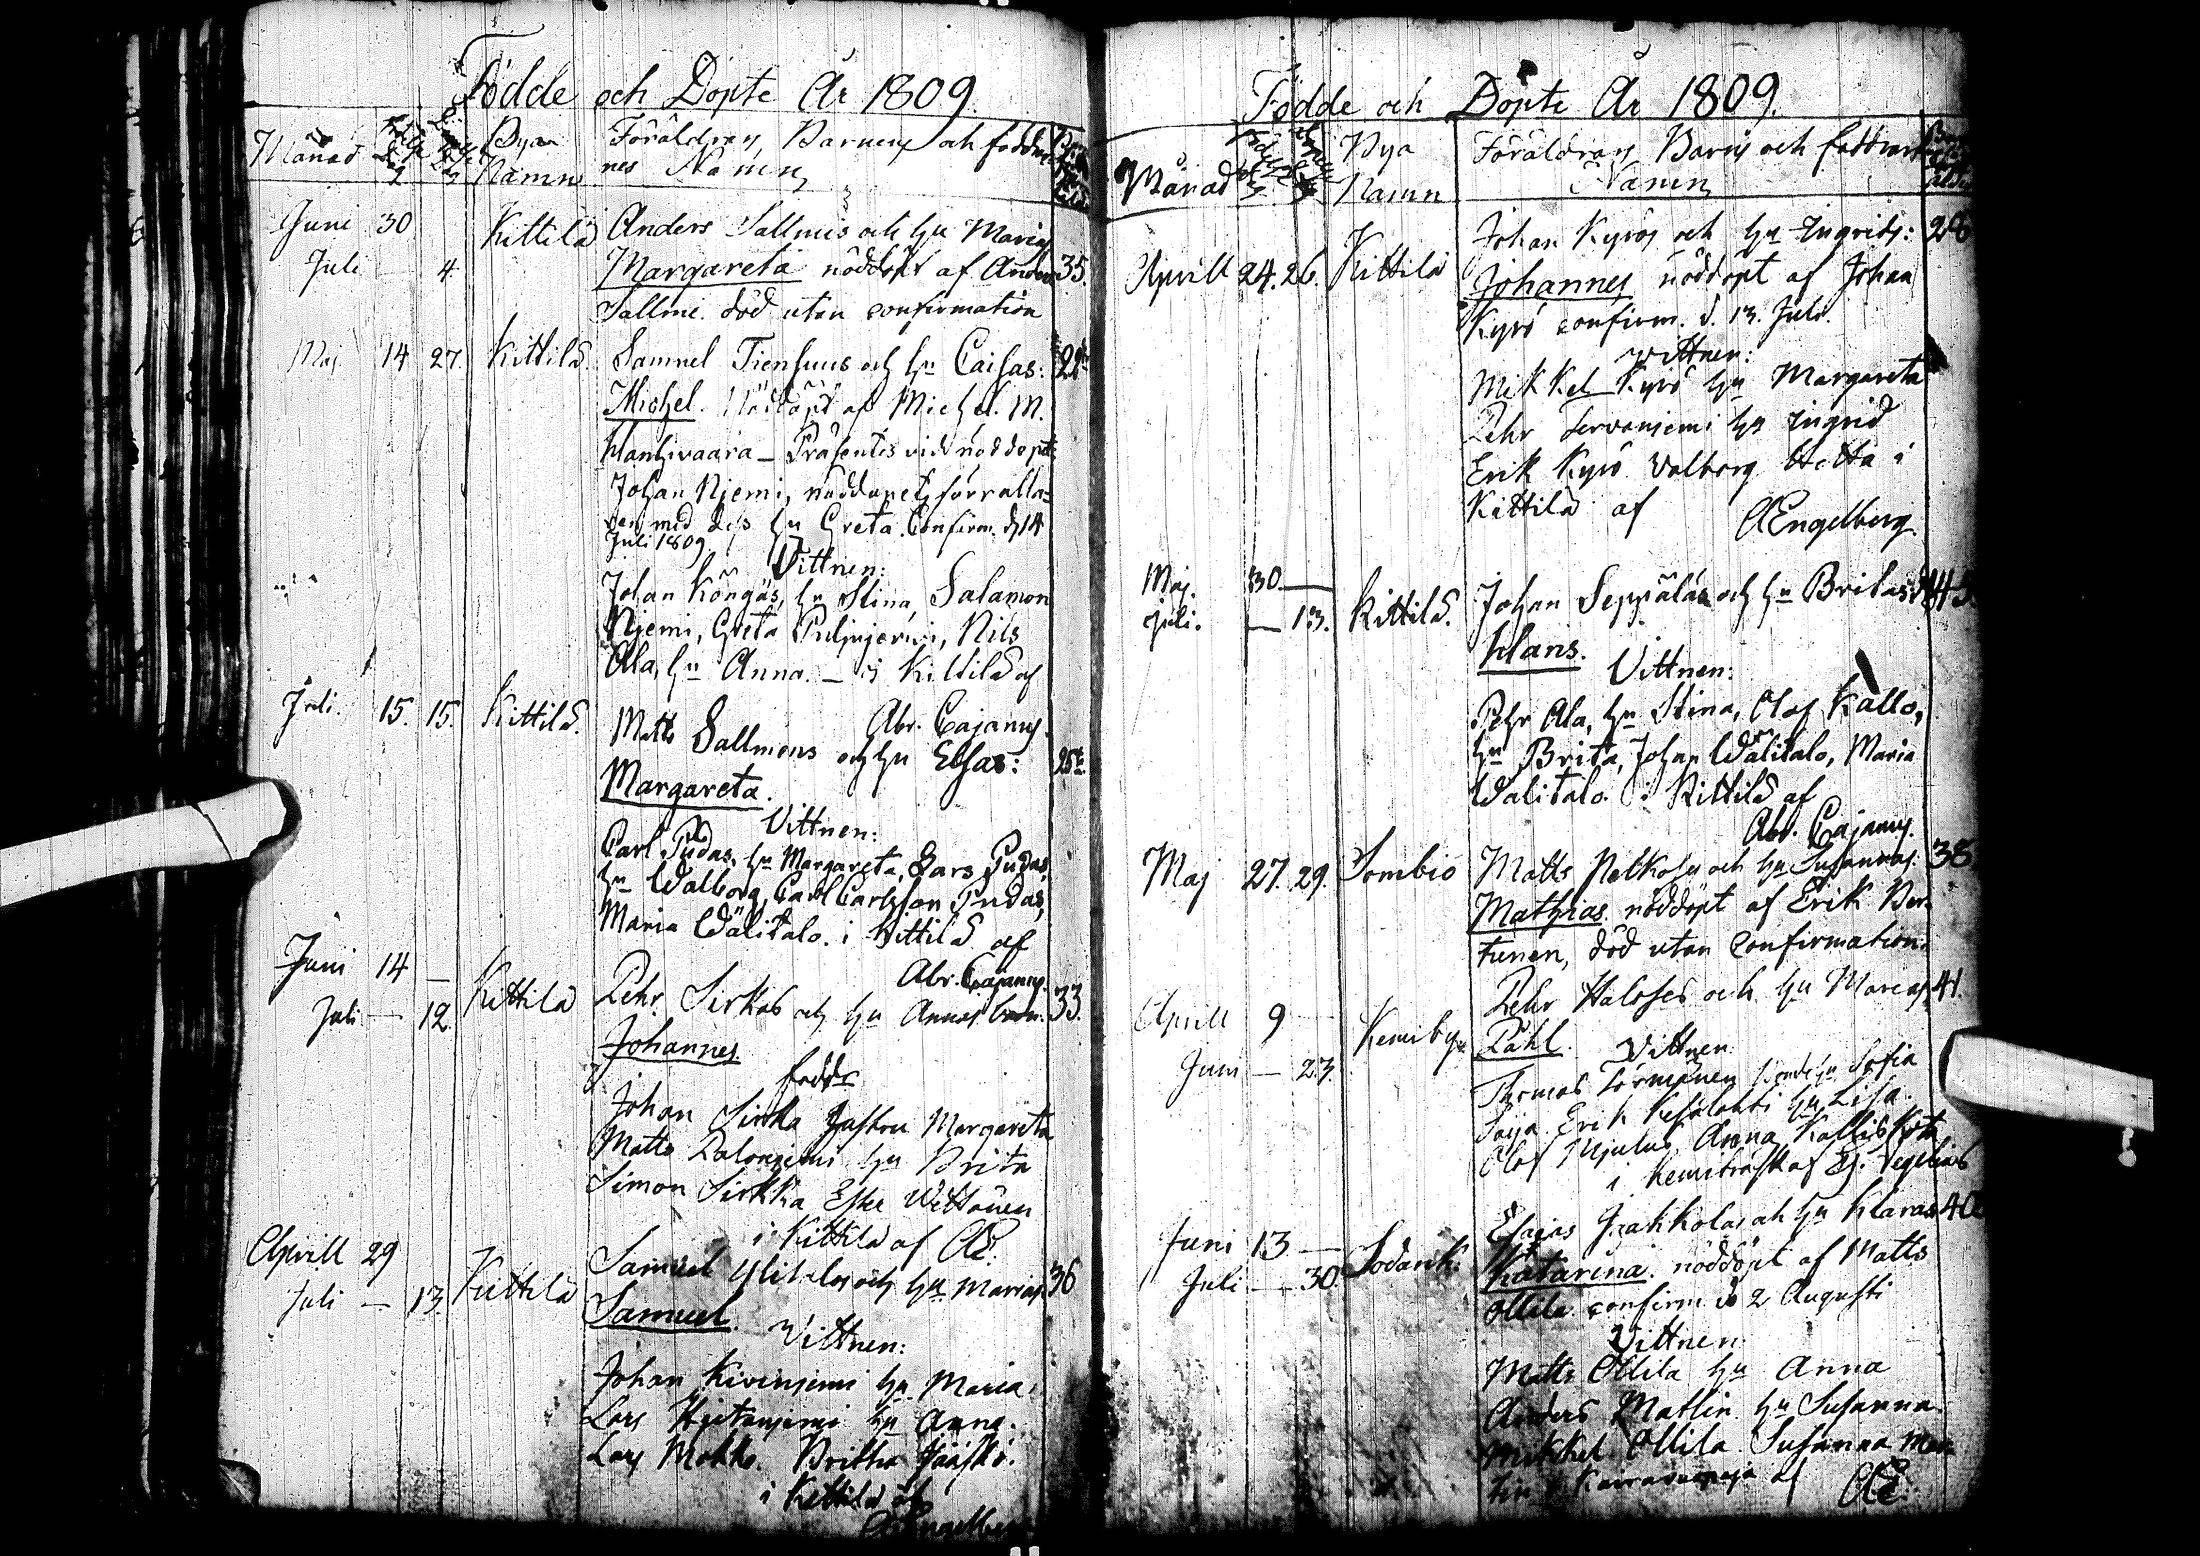 Födde och Döpte År 1809.
Månad Byar Föräldrars, Barnens och faddrar-
Namn nes Namn
Juni 30 Kittilä Anders Sallmis och hu Marias
Juli — 4 Margareta nöddöpt af Anders 35.
Sallmi. död utan confirmation
Maj 14 27. Kittilä. Samuel Tiensuus och hu Caisas:
Michel. Nöddöpt af Michel. M.
Hanhivaara — Präsentes vid nöddopet
Johan Niemi, nöddopets förrätta-
ren med dess hu Greta. Confirm. d. 14
Juli 1809
Vittnen:
Johan Köngäs, hu Stina, Salamon
Niemi, Greta Puljujervi, Nils
Ala, hu Anna. — i Kittilä af
Abr. Cajanus.
Juli. 15. 15. Kittilä. Matts Sallmens och hu Elsas: 25
Margareta.
Vittnen:
Carl Pudas, hu Margareta, Lars Pudas,
hu Walborg, Carl Carlsson Pudas,
Maria Wälitalo. i Kittilä af
Abr. Cajanus.
Juni 14 — Kittilä Pehr Sirkas och hu Annas barn. 33.
Juli — 12. Johannes
faddr
Johan Sirka Hustru Margareta
Matts Palonjemi hu Brita
Simon Sirkka
i Kittilä af AE.
Aprill 29 Kittilä Samuel Ylitalos och hu Marias. 36
Juli — 13. Samuel.
Vittnen:
Johan Kivinjemi hu Maria.
Lars Hietanjemi hu Anna.
Lars Britha
i Kittilä af
AEngelberg
Födde och Döpte År 1809.
Månad Bya Föräldrars Barns och faddrar
Namn Namn
Aprill 24. 26. Kittilä Johan Kyrös och hu Ingrids: 28
Johannes nöddöpt af Johan
Kyrö confirm. d. 13. Juli.
Vittnen:
Mikkel Kyrö hu Margareta
Pehr hu Ingrid
Erik Kyrö Valborg Hetta i
Kittilä af AEngelberg.
Maj. 30 — Kittilä. Johan Seppäläs och hu Britas
Juli. — 13. Hans.
Vittnen:
Pehr Ala, hu Stina, Olof Kallo,
hu Brita, Johan Wälitalo, Maria
Walitalo. i Kittilä af
Abr. Cajanus.
Maj 27. 29. Sombio Matts Pelkosen och hu Susannas: 38
Mathias nöddöpt af Erik Per-
tunen, död utan confirmation.
Aprill 9 — Kemiby. Pehr Haloses och hu Marias 41.
Juni — 23. Påhl. Vittnen
Thomas Törmänen hu Sofia
Erik Kesälahti hu Lisa.
Olof Anna
i Kemiträsk af
Juni 13 — Sodank. Esaias Jaakkolas och hu Klaras 40
Juli — 30. Katarina. nöddöpt af Matts
Ollila confirm d 2 Augusti
Vittnen
Matts Ollila hu Anna
Anders Matlin hu Susanna.
Mikkel Ollila. Susanna Mat-
lin af AE.